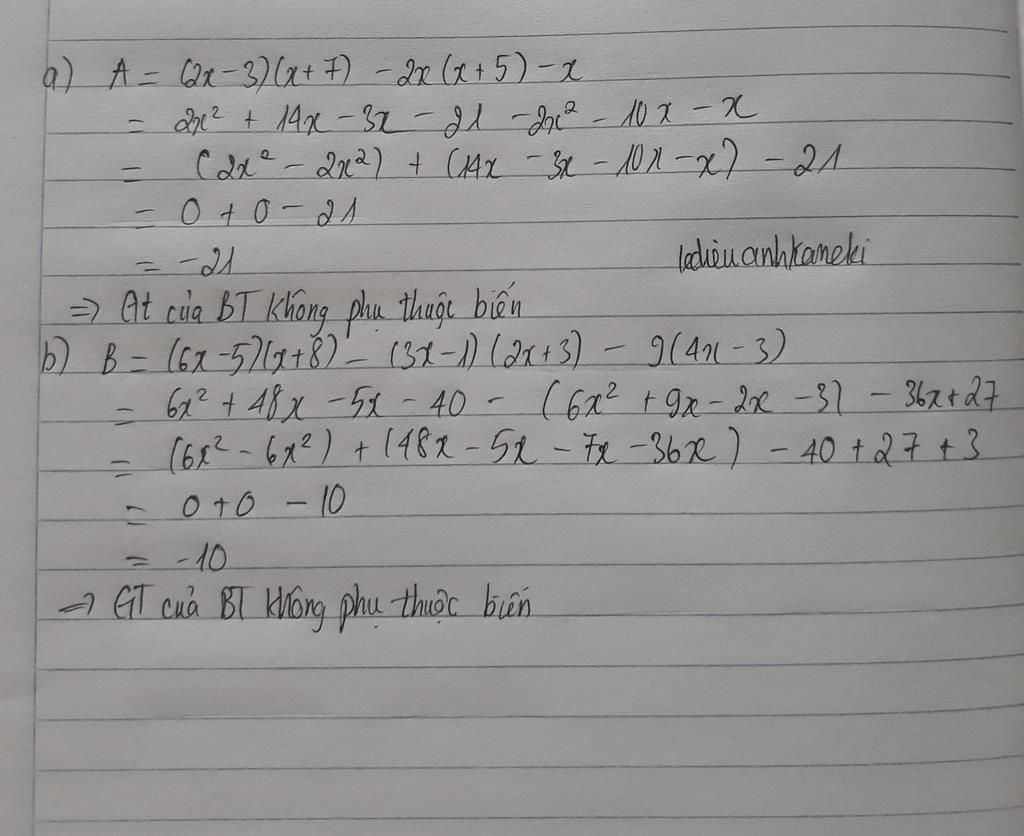 a) A = (2x-3)(x+7) - 2x(x+5) - x
= 2x² + 14x - 3x - 21 - 2x² - 10x - x
= (2x² - 2x²) + (14x - 3x - 10x - x) - 21
= 0 + 0 - 21
= -21
ledieuanhkaneki
=> Gt của BT không phụ thuộc biến
b) B = (6x-5)(x+8) - (3x-1)(2x+3) - 9(4x-3)
= 6x² + 48x - 5x - 40 - (6x² + 9x - 2x - 3) - 36x + 27
= (6x² - 6x²) + (48x - 5x - 7x - 36x) - 40 + 27 + 3
= 0 + 0 - 10
= -10
=> GT của BT không phụ thuộc biến